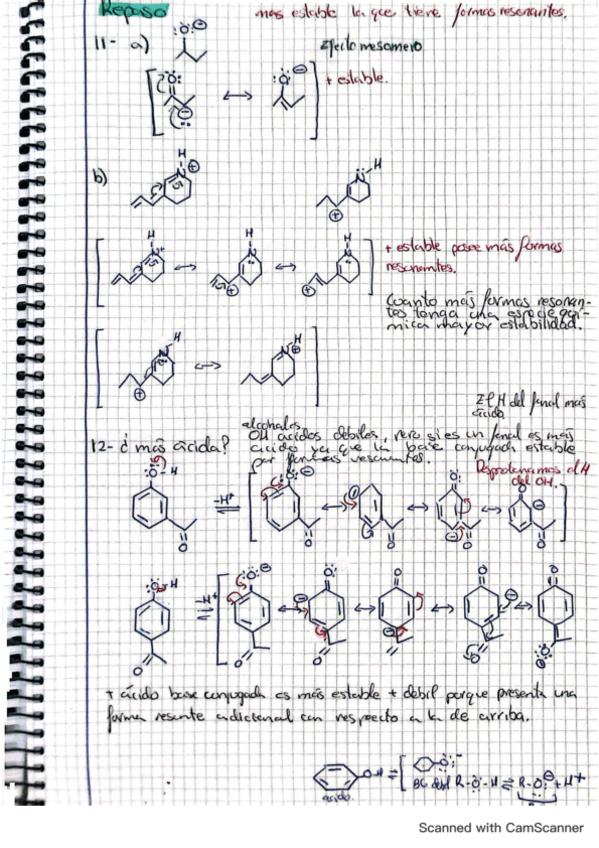 Repaso
más estable la que tiene formas resonantes.
11- a)
Efecto mesomero
+ estable.
b)
+ estable posee más formas
resonantes.
Cuanto más formas resonan-
tes tenga una especie quí-
mica mayor estabilidad.
El H del fenol más
ácido
alcoholes
12- ¿ más ácida?
OH ácidos débiles, pero si es un fenol es más
ácido ya que la base conjugada estable
por formas
Desprotonamos el H
del OH.
-H⁺
-H⁺
+ ácido base conjugada es más estable + débil porque presenta una
forma resonante adicional con respecto a la de arriba.
ácido.
BC débil R-O-H ⇌ R-O⊖ + H+
Scanned with CamScanner